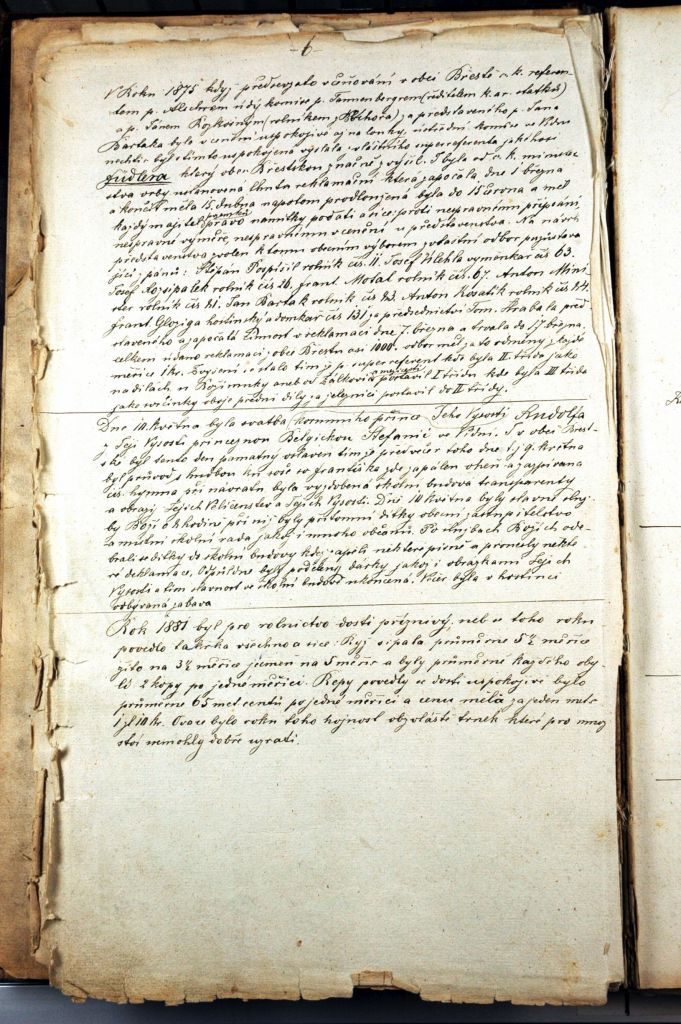 - 6 -
V Roku 1875 když předsevzato vceňování v obci Břestě c. k. referen-
tem p. Alschrem údy komise p. Tannenbergrem (ředitelem k. ar. statků)
a p. Janem Rozkošným (rolníkem z Míchova) za představeného p. Jana
Bartáka bylo vcenění uspokojivé až na louky, ústřední komise ve Vídni
nechtíc být s tímto uspokojená vyslala zvláštního superreferenta jakéhosi
Füdlera který obec Břestskou značně zvýšil. I byla od c. k. minister-
stva vrby ustanovena lhůta reklamační která započala dne 1 března
a končit měla 15. dubna napotom prodloužená byla do 15 června a měl
každý majitel pozemků právo námitky podati a sice: proti nesprávnému připsání,
nesprávné výměře, nesprávnému vcenění u představenstva. Na návrh
představenstva zvolen k tomu obecním výborem zvláštní odbor pozůstáva-
jící z pánů: Štěpán Pospíšil rolník čís. 11. Josef Uhlehla výměnkar čís 63.
Josef Rozsipálek rolník čís. 26. Frant. Motal rolník čís. 67. Anton Mini-
ster rolník čís 21. Jan Barták rolník čís 23. Anton Kosatík rolník čís 24.
Frant Gloziga hostinský a domkař čís 131 za předsednictví Tom. Hrabala před-
staveného a započalá činnost v reklamaci dne 7. března a trvala do 17 března,
celkem udáno reklamací z obce Břestu asi 1000. odbor měl za to odměny z každé
měřice 1 kr. Zvýšení se stalo tím že p. superreferent kde byla II. třída jako
na dílách, u Rozimnky aneb od Žalkovic a nejvíceji postavil I třídu kde byla III třída
jako vočinky oboje přední díly za železnicí postavil do II třídy.
Dne 10. května byla svatba korunního prince Jeho Výsosti Rudolfa
z Její Výsosti princeznou Belgickou Štefanií ve Vídni. I v obci Břest-
ské byl tento den památný oslaven tím že předvečer toho dne t. j. 9. května
byl průvod s hudbou ku soše sv. Františka zde zapálen oheň a zazpívána
cís. hymna při návratu byla vyzdobena školní budova transparenty
a obrazy Jejich Veličenstev a Jejich Výsosti. Dne 10 května byly slavné služ-
by Boží o 8 hodině při nij byly přítomni dítky obecní zastupitelstvo
a místní školní rada jakož i mnoho občanů. Po službách Božích ode-
braly se dítky do školní budovy kdež zapěli některé písně a pronesly někte-
ré deklamace, Odtud dne byly poděleny dárky jakož i obrázkami Jejich
Výsosti a tím slavnost ve školní budově ukončena. Večer byla v hostinci
odbývaná zábava
Rok 1881 byl pro rolnictvo dosti příznivý neb se toho roku
povedlo takřka všechno a sice: Ryž sipala průměrně 5 1/2 měřice
žito na 3 1/2 měřice ječmen na 5 měřic a byly průměrně každého oby-
lí 2 kopy po jedné měřici. Řepy povedly se dosti uspokojivě bylo
průměrně 65 met. centů po jedné měřici a cenu měla za jeden met-
zýl 10 kr. Ovoce bylo roku toho hojnost obzvláště trnek které pro množ
ství nemohly dobře uzráti.